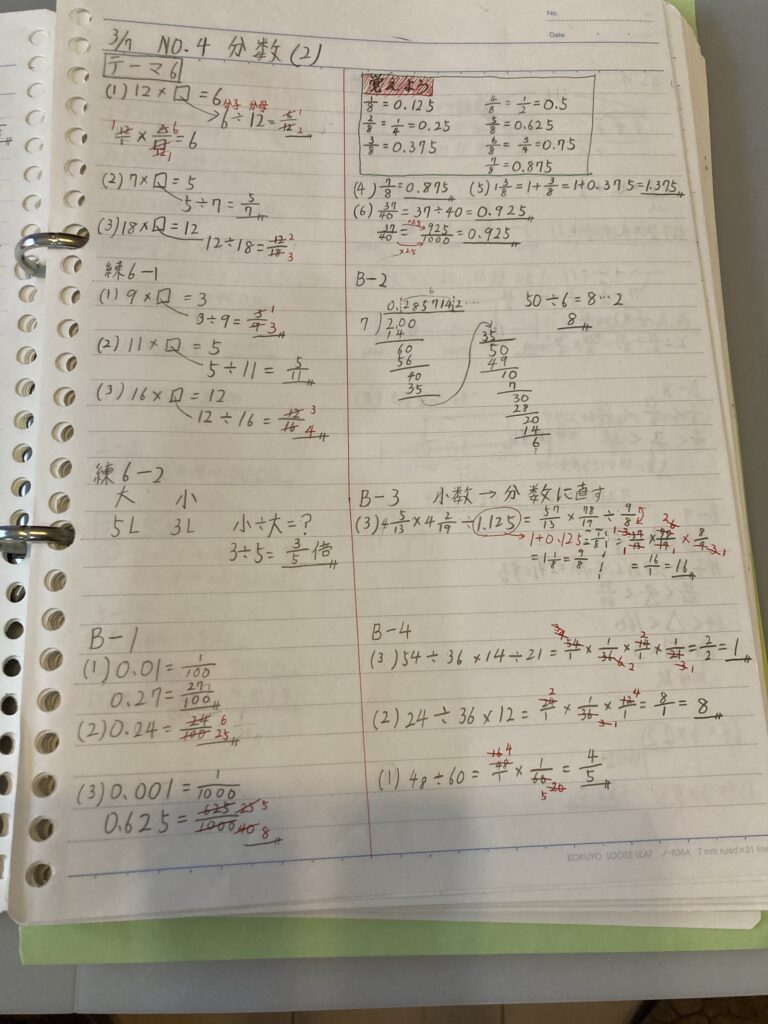 No.
Date
3/7 NO.4 分数(2)
テーマ6
(1) 12×□=6
分子 分母
6÷12=6/12 1/2
12/1×6/12=6
(2) 7×□=5
5÷7=5/7
(3) 18×□=12
12÷18=12/18 2/3
練6-1
(1) 9×□=3
3÷9=3/9 1/3
(2) 11×□=5
5÷11=5/11
(3) 16×□=12
12÷16=12/16 3/4
練6-2
大 小
5L 3L 小÷大=?
3÷5=3/5倍
B-1
(1) 0.01=1/100
0.27=27/100
(2) 0.24=24/100 6/25
(3) 0.001=1/1000
0.625=625/1000 25/40 5/8
覚えよう
1/8=0.125 4/8=1/2=0.5
2/8=1/4=0.25 5/8=0.625
3/8=0.375 6/8=3/4=0.75
7/8=0.875
(4) 7/8=0.875 (5) 1 3/8=1+3/8=1+0.375=1.375
(6) 37/40=37÷40=0.925
×25
37/40=925/1000=0.925
×25
B-2
6
0.2857142… 50÷6=8…2
7)2.00 8
14 35
60 50
56 49
40 10
35 7
30
28
20
14
6
B-3 小数→分数に直す
(3) 4 5/13×4 2/19÷1.125=57/13×78/19÷9/8
1+0.125
=1 1/8=9/8
=16/1=16
B-4
(3) 54÷36×14÷21=54/1×1/36×14/1×1/21=2/2=1
(2) 24÷36×12=24/1×1/36×12/1=8/1=8
(1) 48÷60=48/1×1/60=4/5
KOKUYO LOOSE-LEAF ノ-836A 7mm ruled×31 line